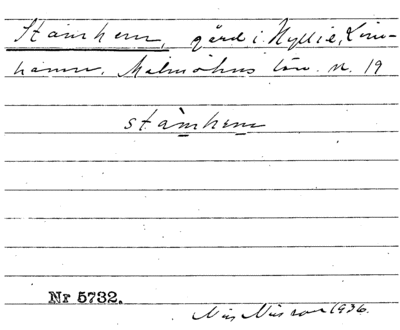 Stamhem, gård i Hyllie, Lim-
hamn. Malmöhus län. M. 19
stamhem
Nr 5732.
Nils Nilsson 1936.